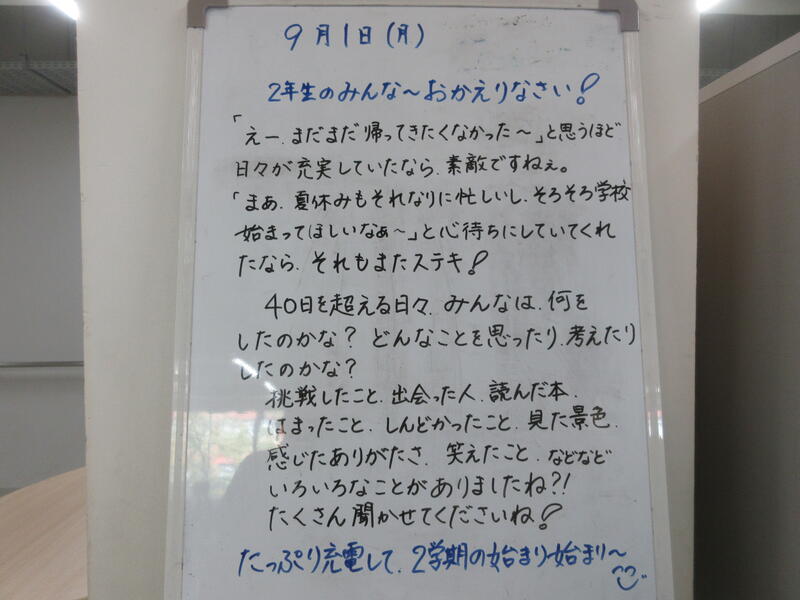 9月1日(月)
2年生のみんな〜おかえりなさい!
「えー、まだまだ帰ってきたくなかった〜」と思うほど
日々が充実していたなら、素敵ですねぇ。
「まぁ、夏休みもそれなりに忙しいし、そろそろ学校
始まってほしいなぁ〜」と心待ちにしていてくれ
たなら、それもまたステキ!
40日を超える日々、みんなは、何を
したのかな? どんなことを思ったり、考えたり
したのかな?
挑戦したこと、出会った人、読んだ本、
はまったこと、しんどかったこと、見た景色、
感じたありがたさ、笑えたこと、などなど
いろいろなことがありましたね?!
たくさん聞かせてくださいね!
たっぷり充電して、2学期の始まり始まり〜